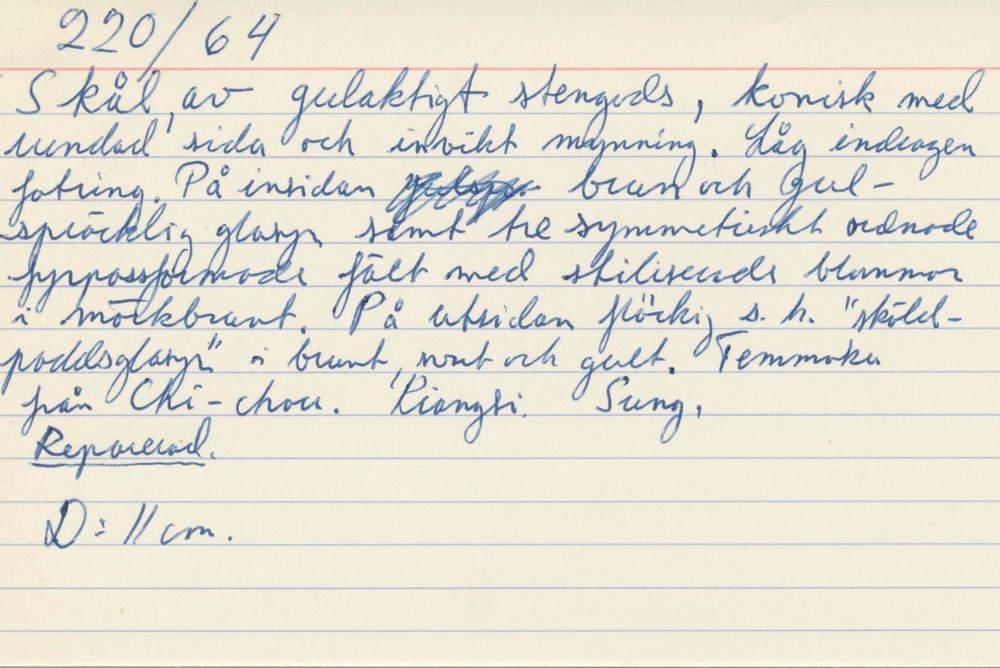 220/64
Skål, av gulaktigt stengods, konisk med
rundad sida och invikt mynning. Låg indragen
fotring. På insidan brun och gul-
spräcklig glasyr samt tre symmetriskt ordnade
fyrpassformade fält med stiliserade blommor
i mörkbrunt. På utsidan fläckig s. k. "sköld-
paddsglasyr" i brunt, svart och gult. Temmoku
från Chi-chou. Kiangsi. Sung.
Reparerad.
D: 11 cm.